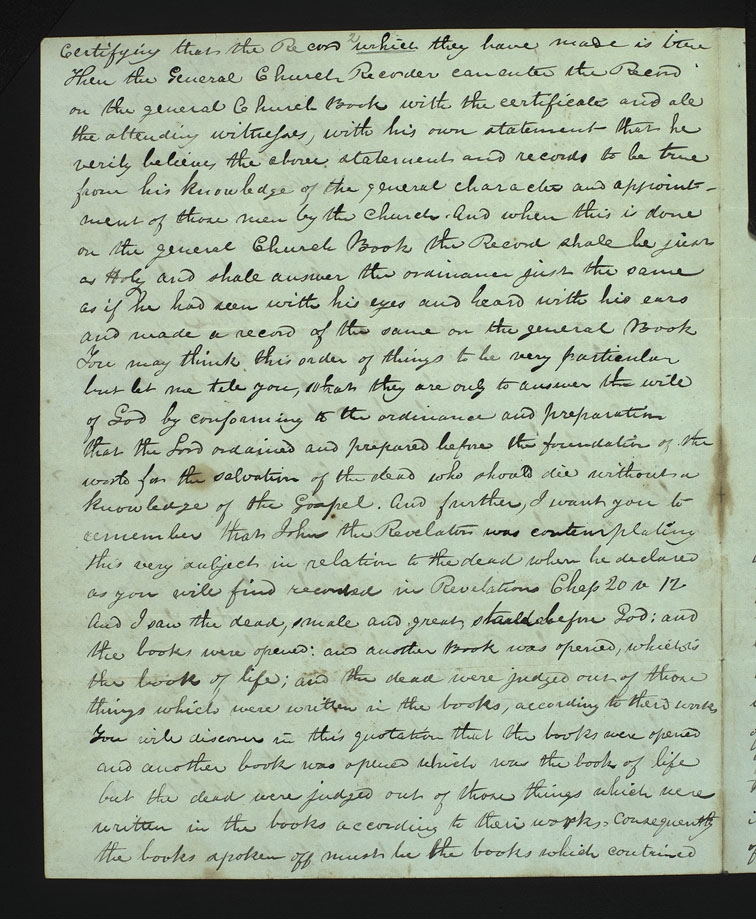 certifying that the Record which they have made is true
Then the General Church Recorder can enter the Record
on the general Church Book with the certificate and all
the attending witnesses, with his own statement that he
verily believes the above statement and records to be true
from his knowledge of the general character and appoint-
ment of those men by the church. And when this is done
on the general Church Book the Record shall be just
as Holy and shall answer the ordinance just the same
as if he had seen with his eyes and heard with his ears
and made a record of the same on the general Book
You may think this order of things to be very particular
but let me tell you, that they are only to answer the will
of God by conforming to the ordinance and preparation
that the Lord ordained and prepared before the foundation of the
world for the salvation of the dead who should die without a
knowledge of the Gospel. And further, I want you to
remember that John the Revelator was contemplating
this very subject in relation to the dead when he declared
as you will find recorded in Revelations Chap 20 v 12
And I saw the dead, small and great, stand before God; and
the books were opened: and another Book was opened, which is
the book of life; and the dead were judged out of those
things which were written in the books, according to their works
You will discover in this quotation that the books were opened
and another book was opened which was the book of life
but the dead were judged out of those things which were
written in the books according to their works. Consequently
the books spoken off must be the books which contained